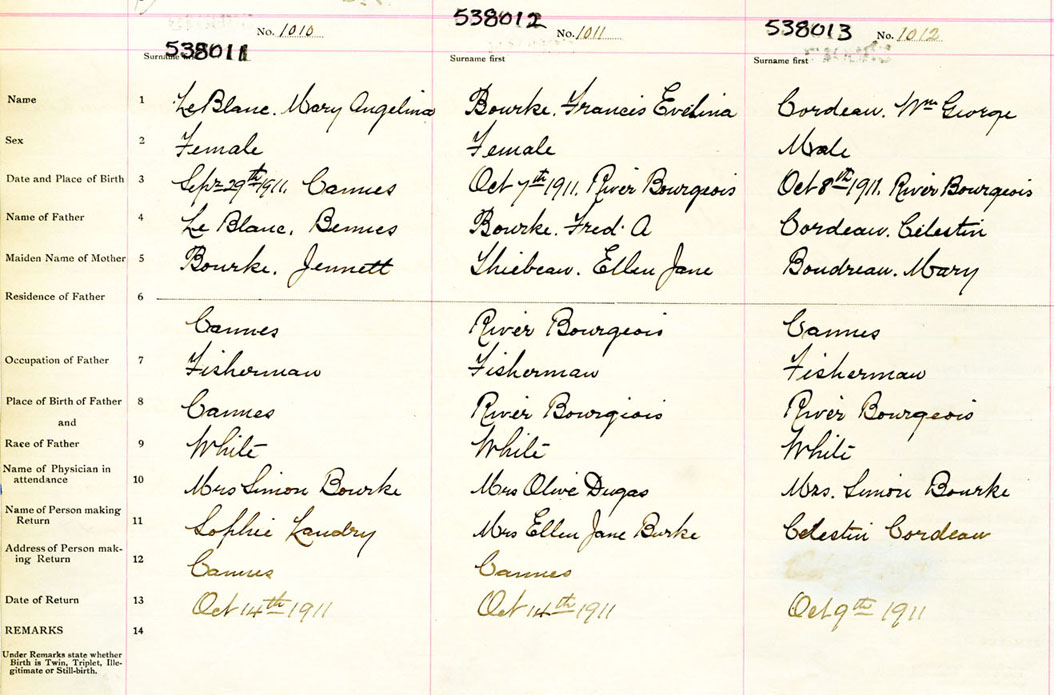 538011 538012 538013
No. 1010 No. 1011 No. 1012
Surname first Surname first Surname first
Name 1 LeBlanc. Mary Angelina Bourke. Francis Evelina Cordeau. Wm George
Sex 2 Female Female Male
Date and Place of Birth 3 Sept 29th 1911. Cannes Oct 7th 1911. River Bourgeois Oct 8th 1911. River Bourgeois
Name of Father 4 Le Blanc. Bourke. Fred. A Cordeau. Celestin
Maiden Name of Mother 5 Bourke. Jennett Ellen Jane Boudreau. Mary
Residence of Father 6
Cannes River Bourgeois Cannes
Occupation of Father 7 Fisherman Fisherman Fisherman
Place of Birth of Father 8 Cannes River Bourgiois River Bourgeois
and
Race of Father 9 White White White
Name of Physician in
attendance 10 Mrs Simon Bourke Mrs Olive Dugas Mrs. Simon Bourke
Name of Person making
Return 11 Sophie Landry Mrs Ellen Jane Burke Celestin Cordeau
Address of Person mak-
ing Return 12 Cannes Cannes
Date of Return 13 Oct 14th 1911 Oct 14th 1911 Oct 9th 1911
REMARKS 14
Under Remarks state whether
Birth is Twin, Triplet, Ille-
gitimate or Still-birth.